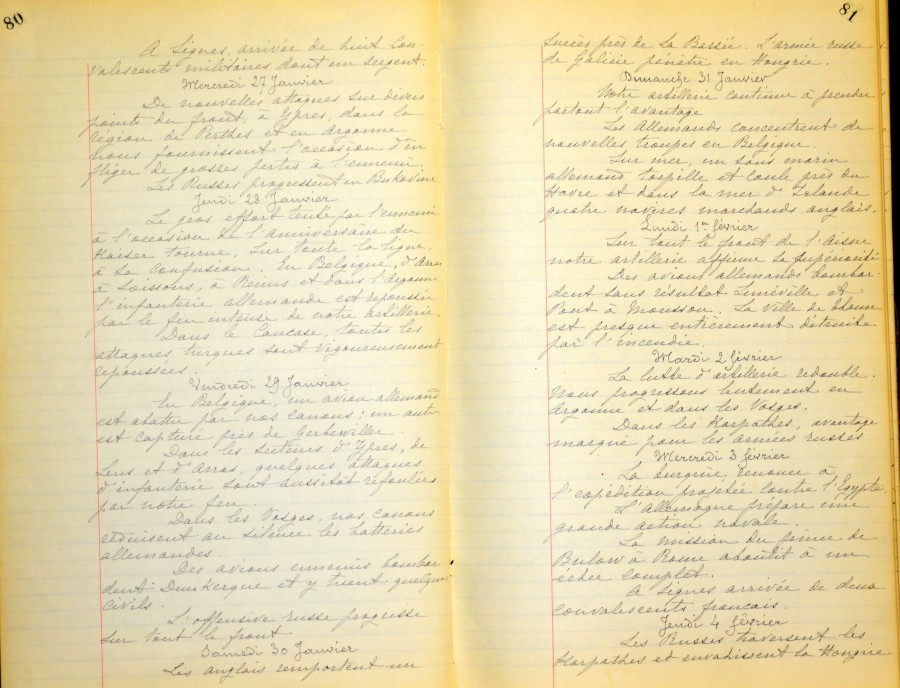 80
A Signes, arrivée de huit con-
valescents militaires dont un sergent.
Mercredi 27 Janvier
De nouvelles attaques sur divers
points du front, à Ypres, dans la
région de Perthes et en Argonne
nous fournissent l'occasion d'in
fliger de grosses pertes à l'ennemi.
Les Russes progressent en Bukovine
Jeudi 28 Janvier
Le gros effort tenté par l'ennemi
à l'occasion de l'anniversaire du
Kaiser tourne, sur toute la ligne,
à sa confusion. En Belgique, d'Arras
à Soissons, à Reims et dans l'Argonne
l'infanterie allemande est repoussée
par le feu intense de notre artillerie.
Dans le Caucase, toutes les
attaques turques sont vigoureusement
repoussées.
Vendredi 29 Janvier
En Belgique, un avion allemand
est abattu par nos canons ; un autre
est capturé près de Gerbeviller.
Dans les secteurs d'Ypres, de
Lens et d'Arras, quelques attaques
d'infanterie sont aussitôt refoulées
par notre feu.
Dans les Vosges, nos canons
réduisent au silence les batteries
allemandes.
Des avions ennemis bombar
dent Dunkerque et y tuent quelques
civils.
L'offensive russe progresse
sur tout le front
Samedi 30 Janvier
Les anglais remportent un
81
succès près de La Bassée. L'armée russe
de Galicie pénètre en Hongrie.
Dimanche 31 Janvier
Notre artillerie continue à prendre
partout l'avantage
Les Allemands concentrent de
nouvelles troupes en Belgique.
Sur mer, un sous marin
allemand torpille et coule près du
Havre et dans la mer d'Irlande
quatre navires marchands anglais.
Lundi 1er février
Sur tout le front de l'Aisne
notre artillerie affirme sa supériorité
Des avions allemands bombar-
dent sans résultat Lunéville et
Pont à Mousson. La ville de
est presque entièrement détruite
par l'incendie.
Mardi 2 février
La lutte d'artillerie redouble.
Nous progressons lentement en
Argonne et dans les Vosges.
Dans les Karpathes, avantage
marqué pour les armées russes
Mercredi 3 février
La Turquie renonce à
l'expédition projetée contre l'Egypte.
L'Allemagne prépare une
grande action navale.
La mission du prince de
Bulow à Rome aboutit à un
échec complet.
A Signes arrivée de deux
convalescents français.
Jeudi 4 février
Les Russes traversent les
Karpathes et envahissent la Hongrie